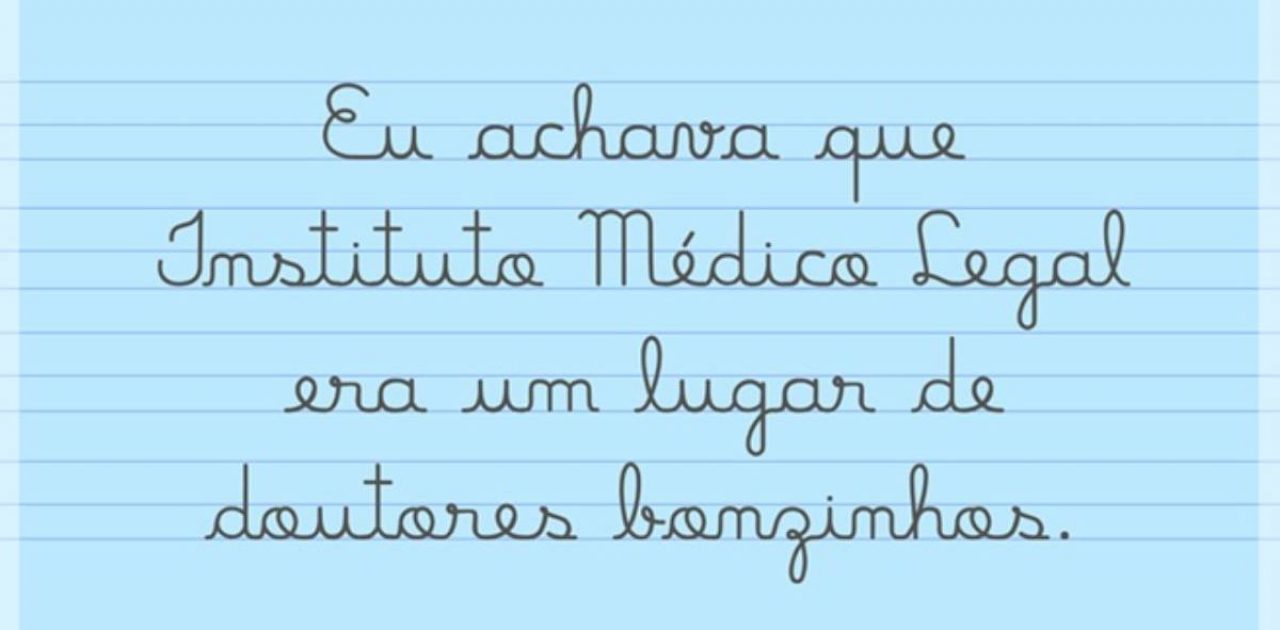 Eu achava que
Instituto Médico Legal
era um lugar de
doutores bonzinhos.